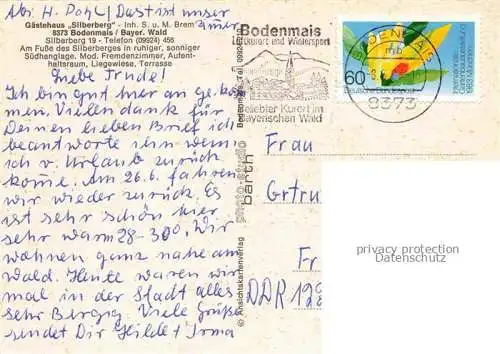 Abs. H. Pohl / Das ist unser Zimmer
Gästehaus „Silberberg" - Inh. S. u. M. Brem
8373 Bodenmais / Bayer. Wald
Silberberg 19 - Telefon (09924) 455
Am Fuße des Silberberges in ruhiger, sonniger
Südhanglage. Mod. Fremdenzimmer, Aufent-
haltsraum, Liegewiese, Terrasse
Liebe Trude!
Ich bin gut hier an geko-
men. Vielen dank für
Deinen lieben Brief ich
beantworte ihn wenn
ich v. Urlaub zurück
kome. Am 26.6. fahren
wir wieder zurück. Es
ist sehr schön hier
sehr warm 28-30°, Wir
wohnen ganz nahe am
Wald. Heute waren wir
mal in der Stadt alles
sehr Burgig. Viele Grüße
sendet Dir Hilde + Irma
© Ansichtskartenverlag
photo-studio
barth
Bodenmais
Luftkurort und Wintersport
Beliebter Kurort im
Bayerischen Wald
BODENMAIS
mb
8373
60
Deutsche Bundespost
Internationale
Gartenbauausstellung
1983 München
Frau
Grtru
Fr
DDR 198
privacy protection
Datenschutz